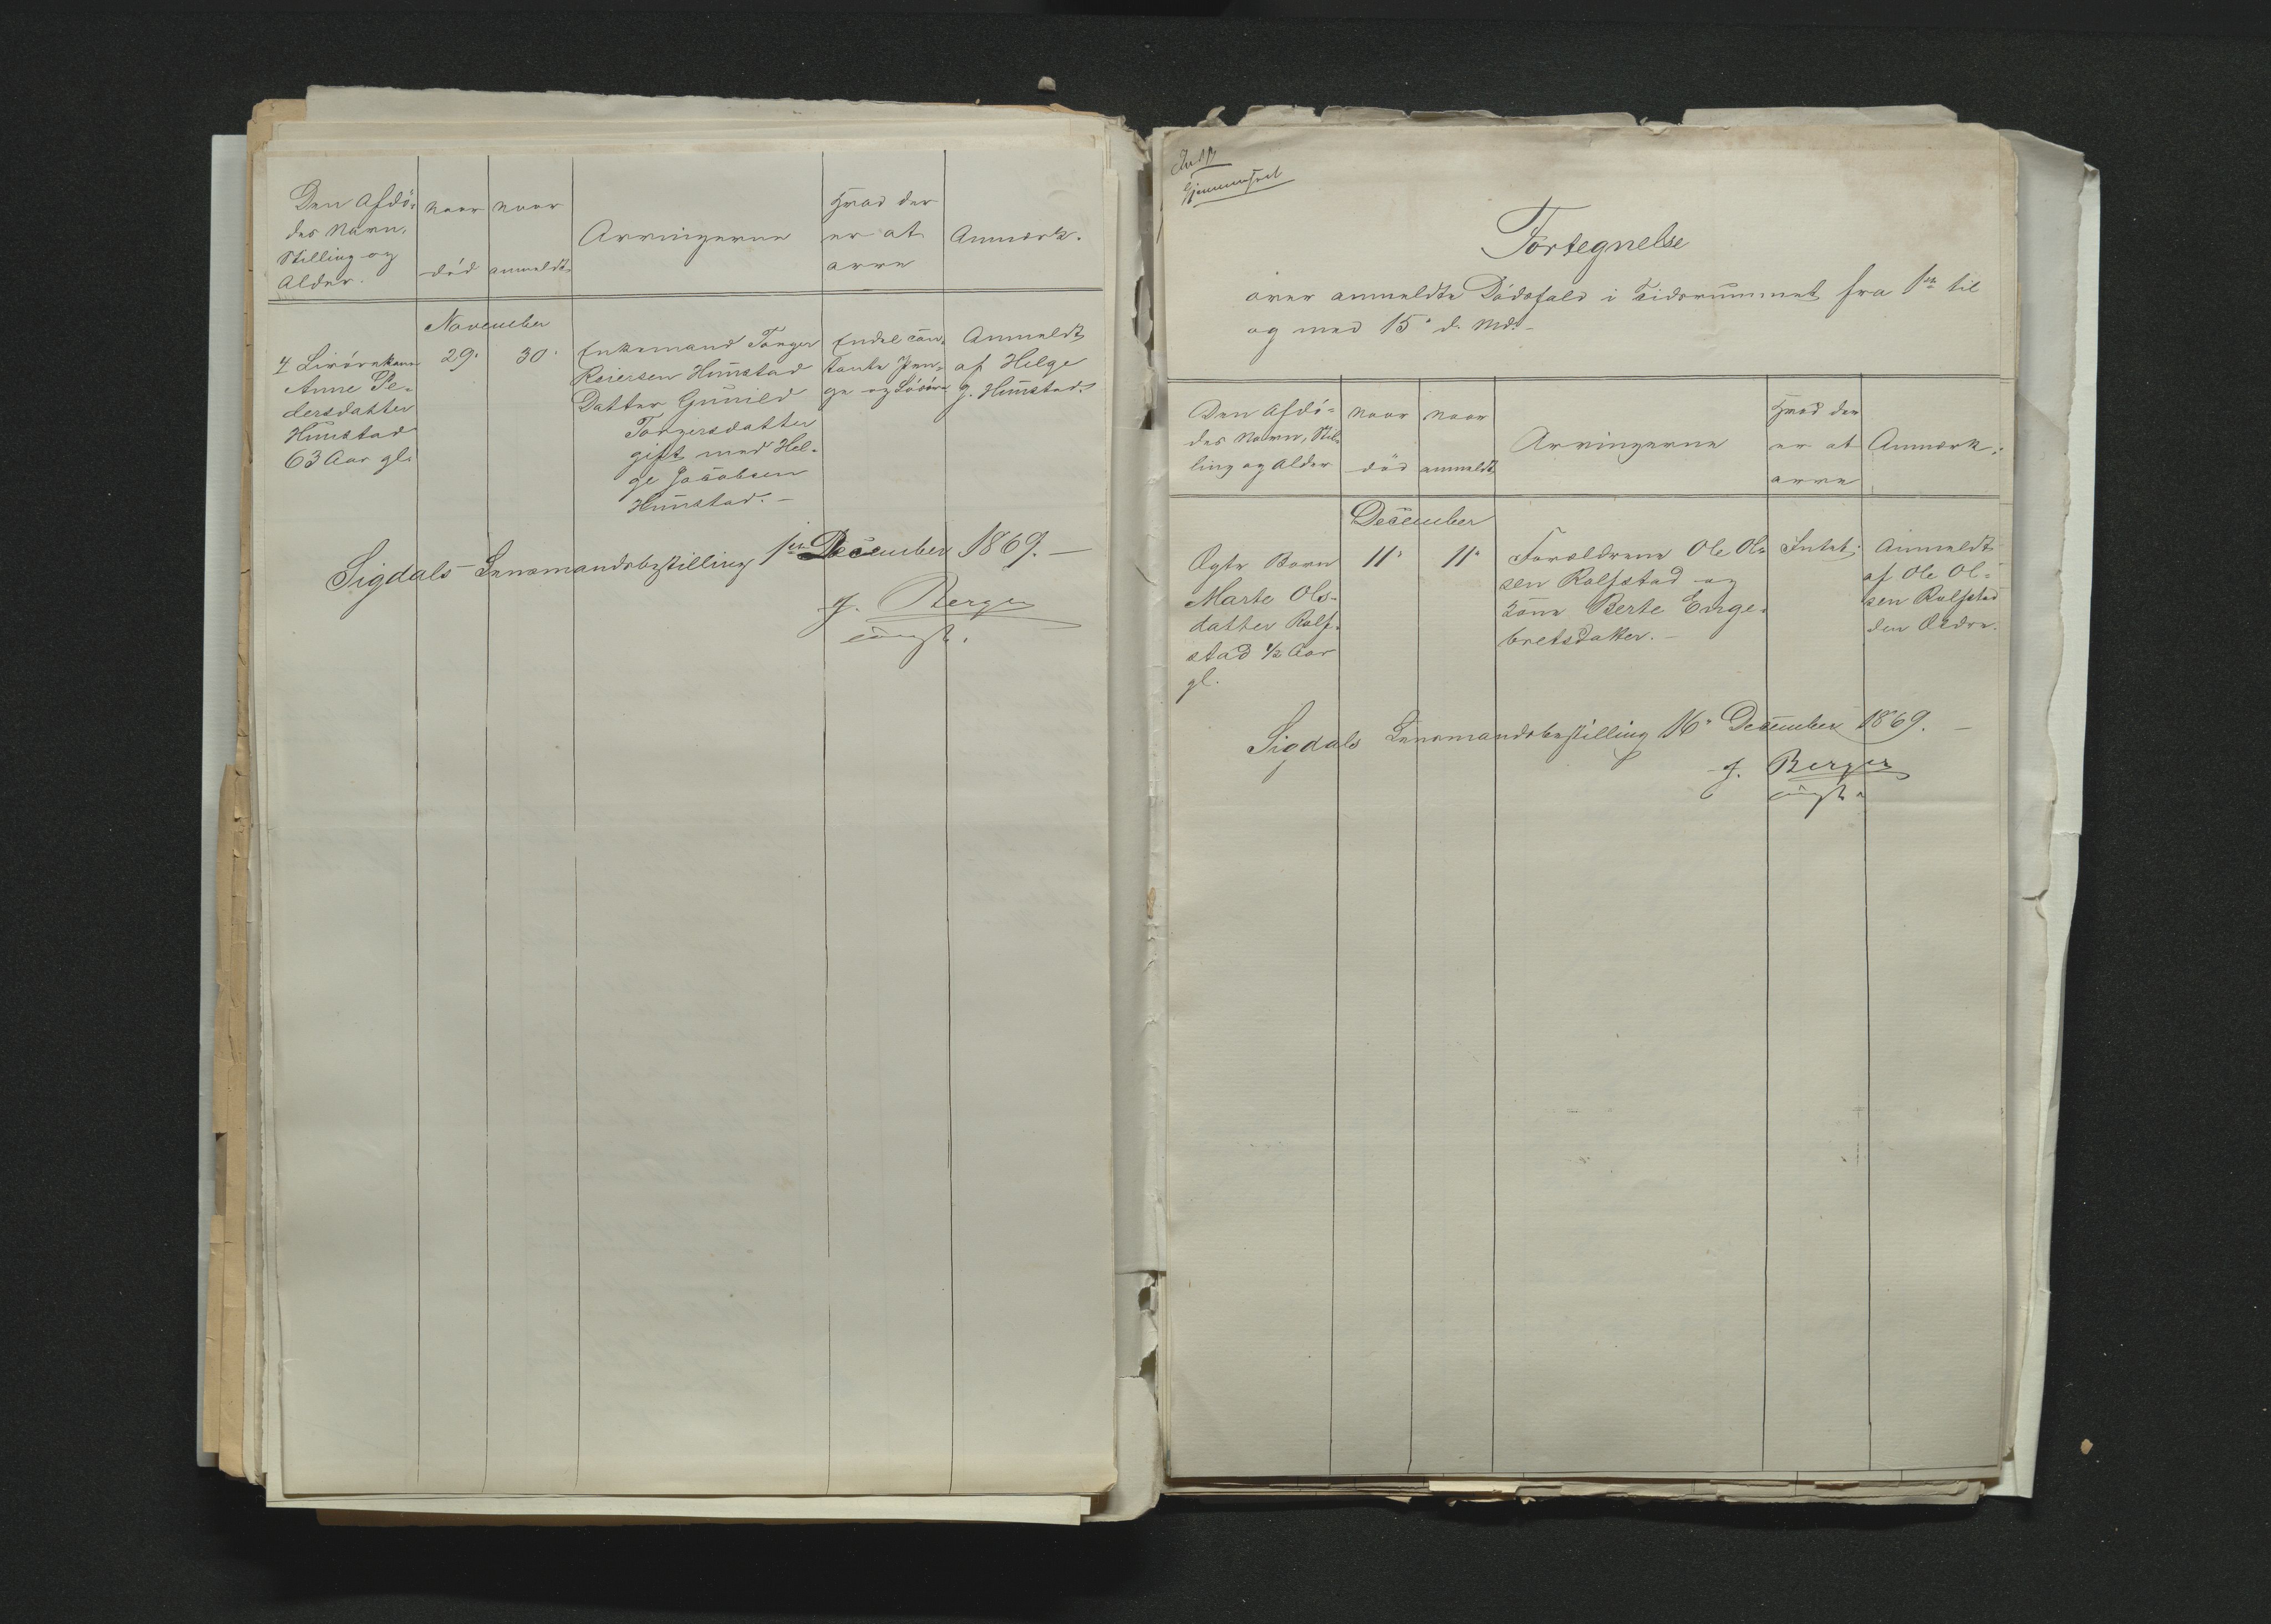 Den Afdö-
des Navn,
Stilling og
Alder.
Naar
död
Naar
anmeldt
Arvingerne
Hvad der
er at
arve
Anmærk.
November
4 Livörekone
Anne Pe-
dersdatter
Hunstad
63 Aar gl.
29.
30.
Enkemand Torger
Reiersen Hunstad
Datter Gunild
Torgersdatter
gift med Hel-
ge Jacobsen
Hunstad. —
Endel con-
tante Pen-
ge og Lösöre
Anmeldt
af Helge
J. Hunstad.
Sigdals Lensmandsbestilling 1ste December 1869. —
J. Berger
const.
Gjennemseet
Fortegnelse
over anmeldte Dödsfald i Tidsrummet fra 1ste til
og med 15. d. Md. —
Den Afdö-
des Navn, Stil-
ling og Alder
Naar
död
Naar
anmeldt
Arvingerne
Hvad der
er at
arve
Anmærk.
December
Ægte Barn
Marte Ols-
datter Rolf-
stad ½ Aar
gl.
11.
11.
Forældrene Ole Ol-
sen Rolfstad og
Kone Berte Enge-
bretsdatter. —
Intet.
Anmeldt
af Ole Ol-
sen Rolfstad
den Ældre.
Sigdals Lensmandsbestilling 16. December 1869. —
J. Berger
const.